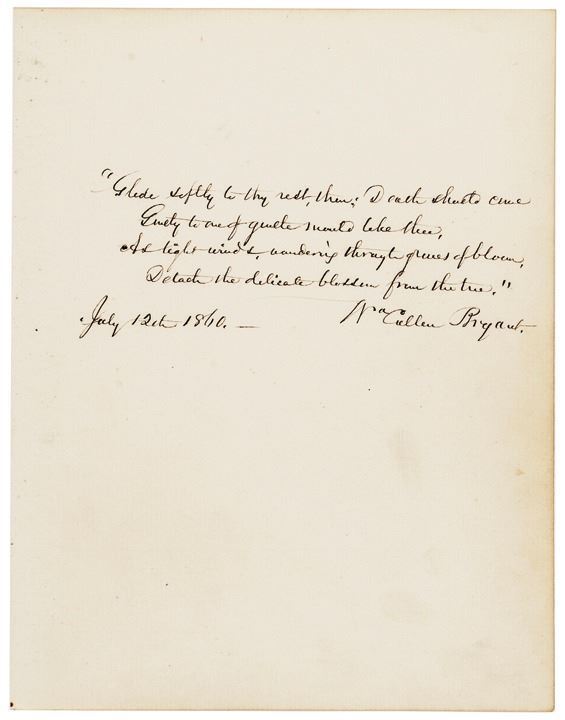 "Glide softly to thy rest, then; Death should come
Gently to one of gentle mould like thee,
As light winds, wandering through groves of bloom,
Detach the delicate blossom from the tree."
July 12th 1860. — Wm Cullen Bryant.